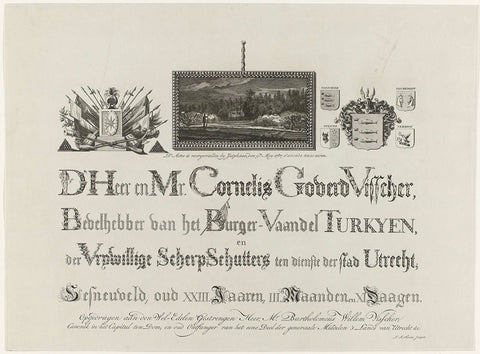 D'Heer en Mr. Cornelis Goverd Visscher,
Bevelhebber van het Burger-Vaandel TURKYEN,
en
der Vrywillige Scherp-Schutters ten dienste der stad Utrecht;
Gesneuveld, oud XXIII Jaaren, III Maanden en XI Daagen.
Opgedragen aan den Wel-Edelen Gestrengen Heer, Mr. Bartholomeus Willem Visscher,
Canonik in het Capittel ten Dom, en oud Ontfanger van het eene Deel der generaale Middelen 's Lands van Utrecht &c.